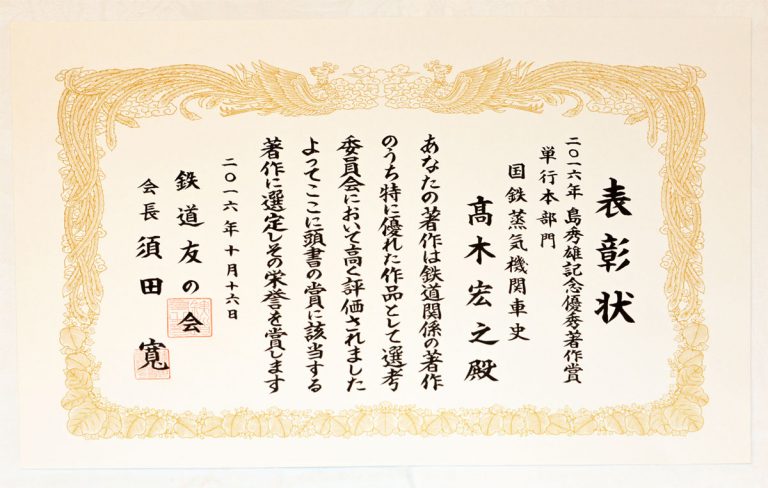 表彰状
二〇一六年 島秀雄記念優秀著作賞
単行本部門
国鉄蒸気機関車史
髙木宏之殿
あなたの著作は鉄道関係の著作
のうち特に優れた作品として選考
委員会において高く評価されました
よってここに頭書の賞に該当する
著作に選定しその栄誉を賞します
二〇一六年十月十六日
鉄道友の会
会長 須田 寬